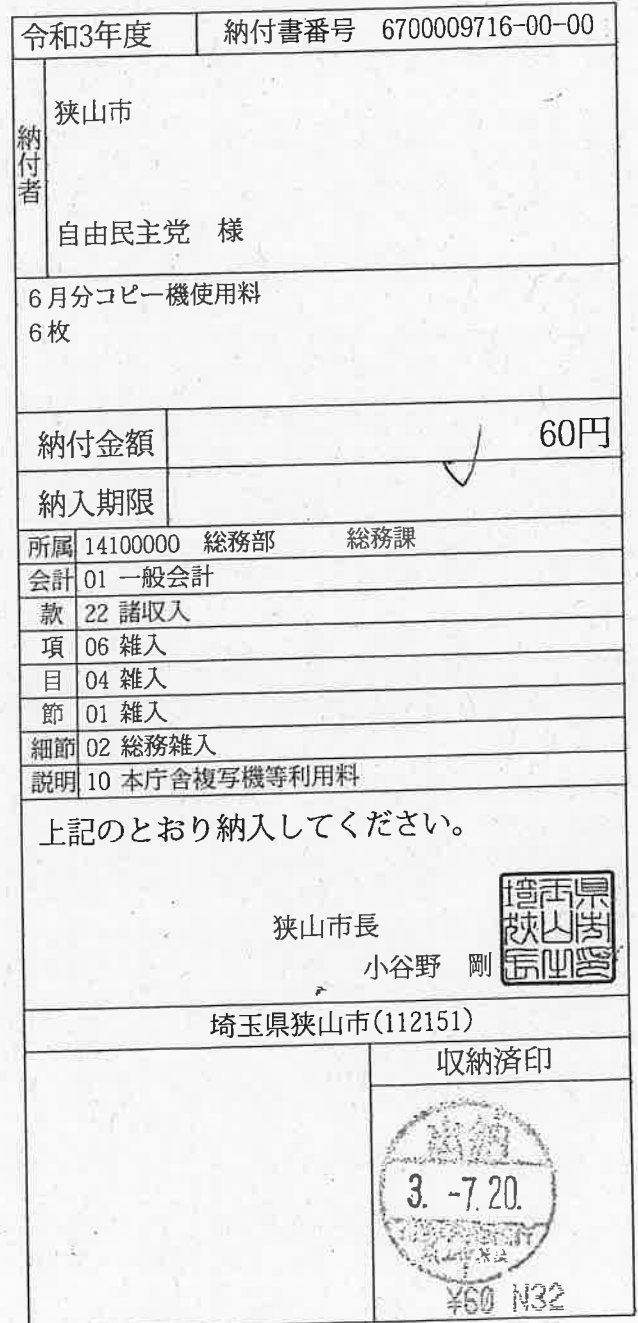 令和3年度 納付書番号 6700009716-00-00
納付者
狭山市
自由民主党 様
6月分コピー機使用料
6枚
納付金額 60円
納入期限
所属 14100000 総務部 総務課
会計 01 一般会計
款 22 諸収入
項 06 雑入
目 04 雑入
節 01 雑入
細節 02 総務雑入
説明 10 本庁舎複写機等利用料
上記のとおり納入してください。
狭山市長
小谷野 剛
埼玉県狭山市(112151)
収納済印
出納
3. -7.20.
¥60 N32